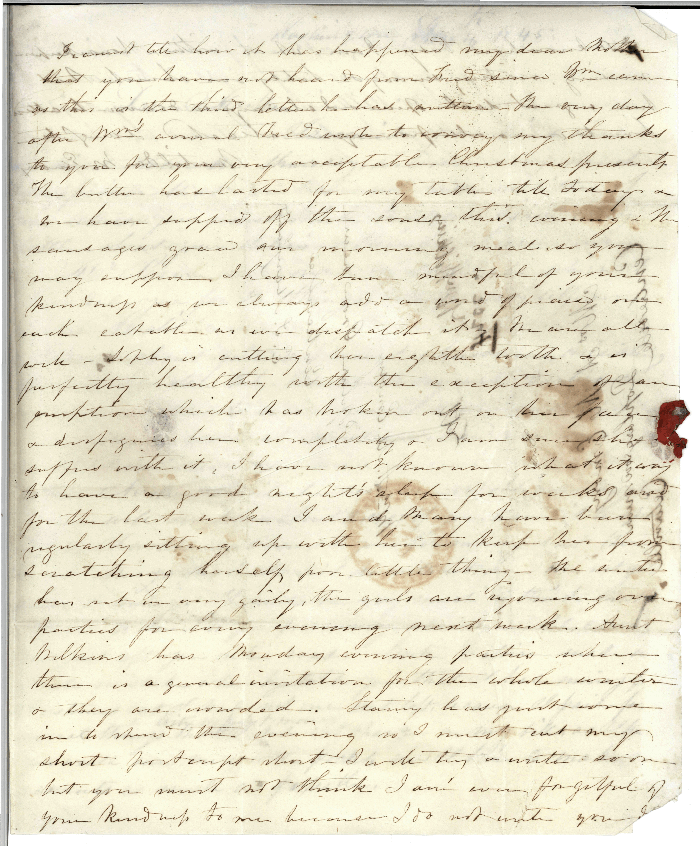 I cannot tell how it has happened my dear Mother
that you have not heard from Fred since Wm came
as this is the third letter he has written. The very day
after Wm's arrival Fred wrote to convey my thanks
to you for your very acceptable Christmas presents
The butter has lasted for my table till today &
we have supped off the souse this evening & the
sausages graced our morning meal so you
may suppose I have been mindful of your
kindness as we always add a word of praise over
each eatable as we dispatch it. We are all
well - Sophy is cutting her eighth tooth & is
perfectly healthy with the exception of an
eruption which has broken out on her face
& disfigures her completely & I am sure she
suffers with it, I have not known what it was
to have a good night's sleep for weeks and
for the last week I and Mary have been
regularly sitting up with her to keep her from
scratching herself, poor little thing - The winter
has set in very gaily, the girls are rejoicing over
parties for every evening next week. Aunt
Wilkins has Monday evening parties where
there is a general invitation for the whole winter
& they are crowded. has just come
in to spend the evening so I must cut my
short postscript short - I write by & write so on
but you must not think I am ever forgetful of
your kindness to me because I do not write you